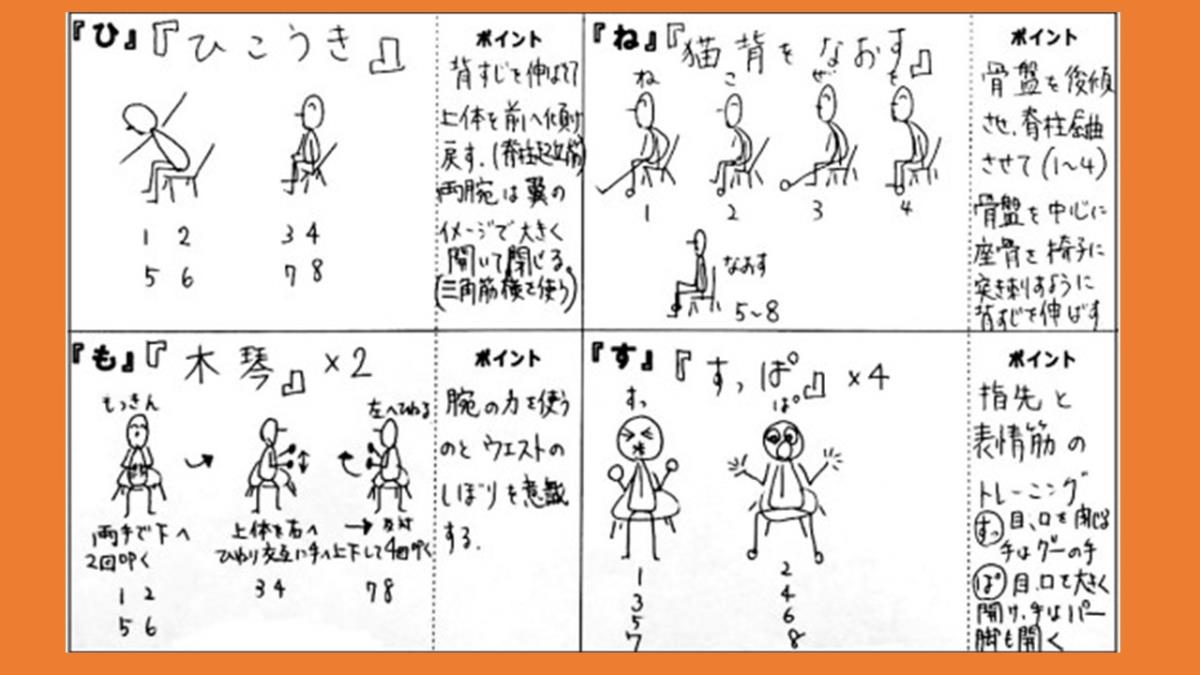 『ひ』『ひこうき』
1 2
3 4
5 6
7 8
ポイント
背すじを伸ばして
上体を前へ傾け
戻す。(脊柱起立筋)
両腕は翼の
イメージで大きく
開いて閉じる。
(三角筋横を使う)
『ね』『猫背をなおす』
ね
こ
ぜ
を
1
2
3
4
なおす
5~8
ポイント
骨盤を後傾
させ、脊柱屈曲
させて(1~4)
骨盤を中心に
座骨を椅子に
突き刺すように
背すじを伸ばす
『も』『木琴』×2
もっきん
左へひねる
両手で下へ
2回叩く
上体を右へ
ひねり交互に手を上下して4回叩く
→反対
1 2
3 4
7 8
5 6
ポイント
腕の力を使う
のとウエストの
しぼりを意識
する。
『す』『すっぱ°』×4
すっ
ぱ°
1
3
5
7
2
4
6
8
ポイント
指先と
表情筋の
トレーニング
すっ 目、口を閉じる
手はグーの手
ぱ° 目、口を大きく
開け、手はパー
脚も開く